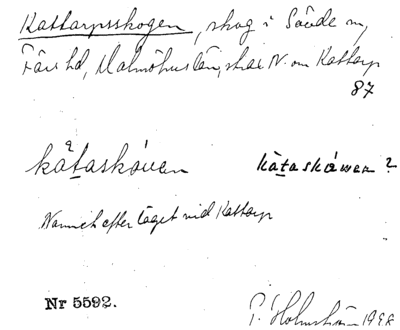 Kattarpsskogen, skog i Sövde sn,
Färs hd, Malmöhus län, strax N. om Kattarp
87
kåtaskåwen kåtaskåwen ?
Namnet efter läget vid Kattarp
Nr 5592.